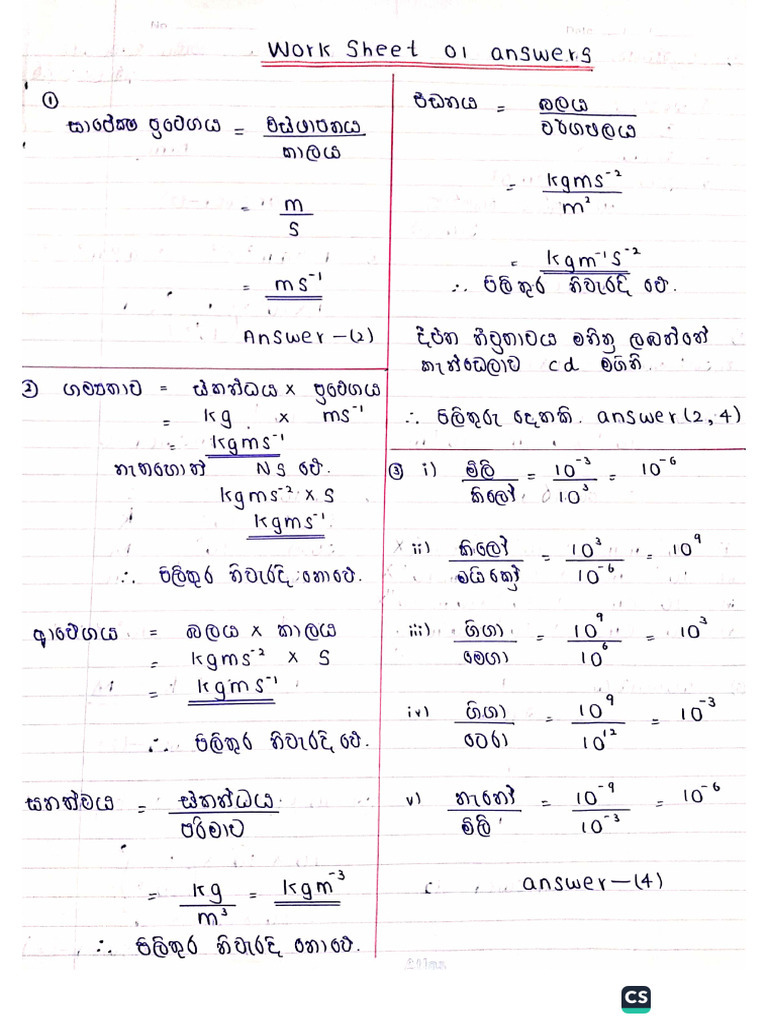 No
Date
Work Sheet 01 answers
①
සාපේක්ෂ ප්‍රවේගය = විස්ථාපනය
කාලය
= m
s
= ms⁻¹
Answer – (2)
② ගම්‍යතාව = ස්කන්ධය × ප්‍රවේගය
= kg × ms⁻¹
= kgms⁻¹
නැතහොත් Ns වේ.
kgms⁻² × s
kgms⁻¹
∴ පිලිතුර නිවැරදි නොවේ.
ආවේගය = බලය × කාලය
= kgms⁻² × s
= kgms⁻¹
∴ පිලිතුර නිවැරදි වේ.
ඝනත්මය = ස්කන්ධය
පරිමාව
= kg = kgm⁻³
m³
∴ පිලිතුර නිවැරදි නොවේ.
පීඩනය = බලය
වර්ගඵලය
= kgms⁻²
m²
= kgm⁻¹s⁻²
∴ පිලිතුර නිවැරදි වේ.
දීප්ත තීව්‍රතාවය මනිනු ලබන්නේ
කැන්ඩෙලාව cd මගිනි.
∴ පිලිතුරු දෙකකි. answer (2, 4)
③ i) මිලි = 10⁻³ = 10⁻⁶
කිලෝ 10³
ii) කිලෝ = 10³ = 10⁹
මයික්‍රෝ 10⁻⁶
iii) ගිගා = 10⁹ = 10³
මෙගා 10⁶
iv) ගිගා = 10⁹ = 10⁻³
ටෙරා 10¹²
v) නැනෝ = 10⁻⁹ = 10⁻⁶
මිලි 10⁻³
answer – (4)
CS